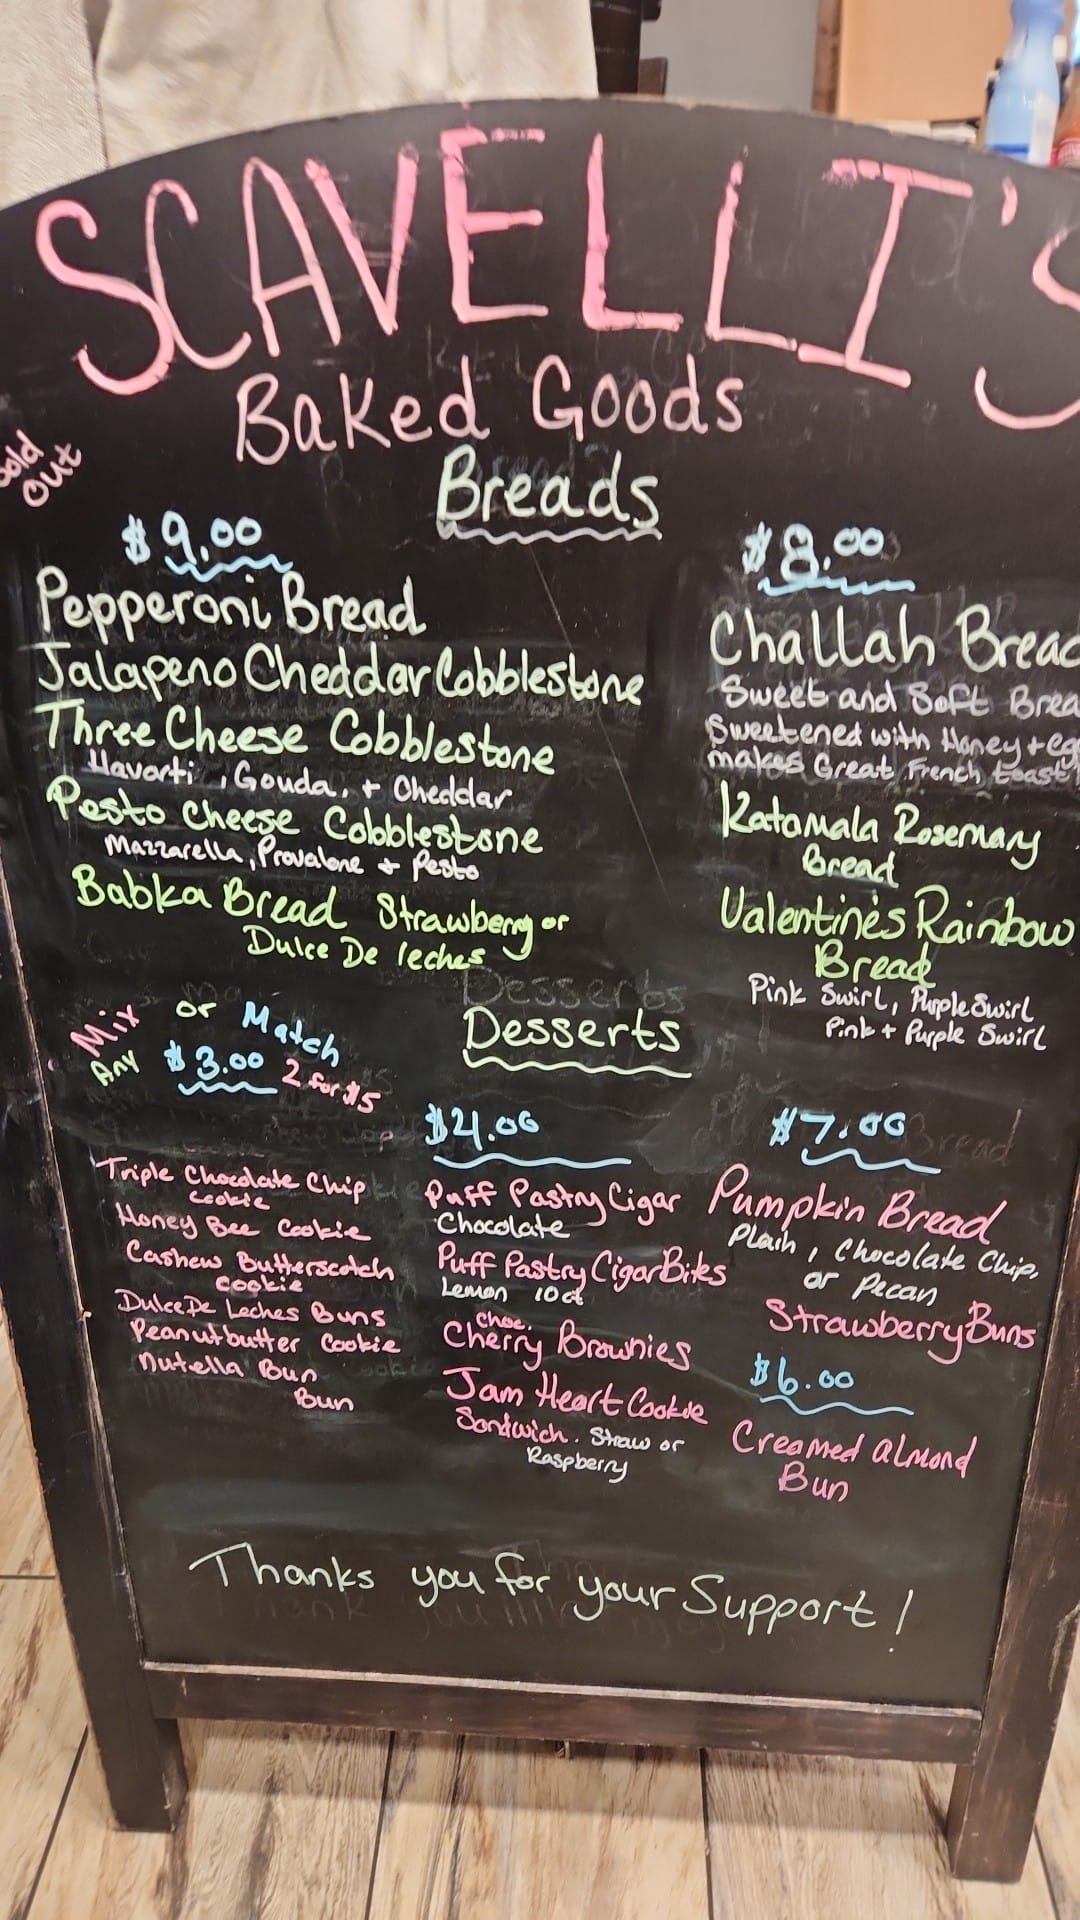 SCAVELLI'S
Baked Goods
Sold
Out
Breads
$9.00
Pepperoni Bread
Jalapeno Cheddar Cobblestone
Three Cheese Cobblestone
Havarti, Gouda, + Cheddar
Pesto Cheese Cobblestone
Mazzarella, Provalone + Pesto
Babka Bread Strawberry or
Dulce De leches
$8.00
Challah Bread
Sweet and Soft Brea
Sweetened with Honey + egg
makes Great French toast
Katamala Rosemary
Bread
Valentine's Rainbow
Bread
Pink Swirl, Purple Swirl
Pink + Purple Swirl
Desserts
Mix or Match
Any $3.00 2 for $5
Triple Chocolate Chip
cookie
Honey Bee Cookie
Cashew Butterscotch
cookie
Dulce De Leches Buns
Peanutbutter Cookie
Nutella Bun
Bun
$4.00
Puff Pastry Cigar
Chocolate
Puff Pastry Cigar Bites
Lemon 10ct
choc.
Cherry Brownies
Jam Heart Cookie
Sandwich. Straw or
Raspberry
$7.00
Pumpkin Bread
Plain, Chocolate Chip,
or Pecan
Strawberry Buns
$6.00
Creamed almond
Bun
Thanks you for your Support!